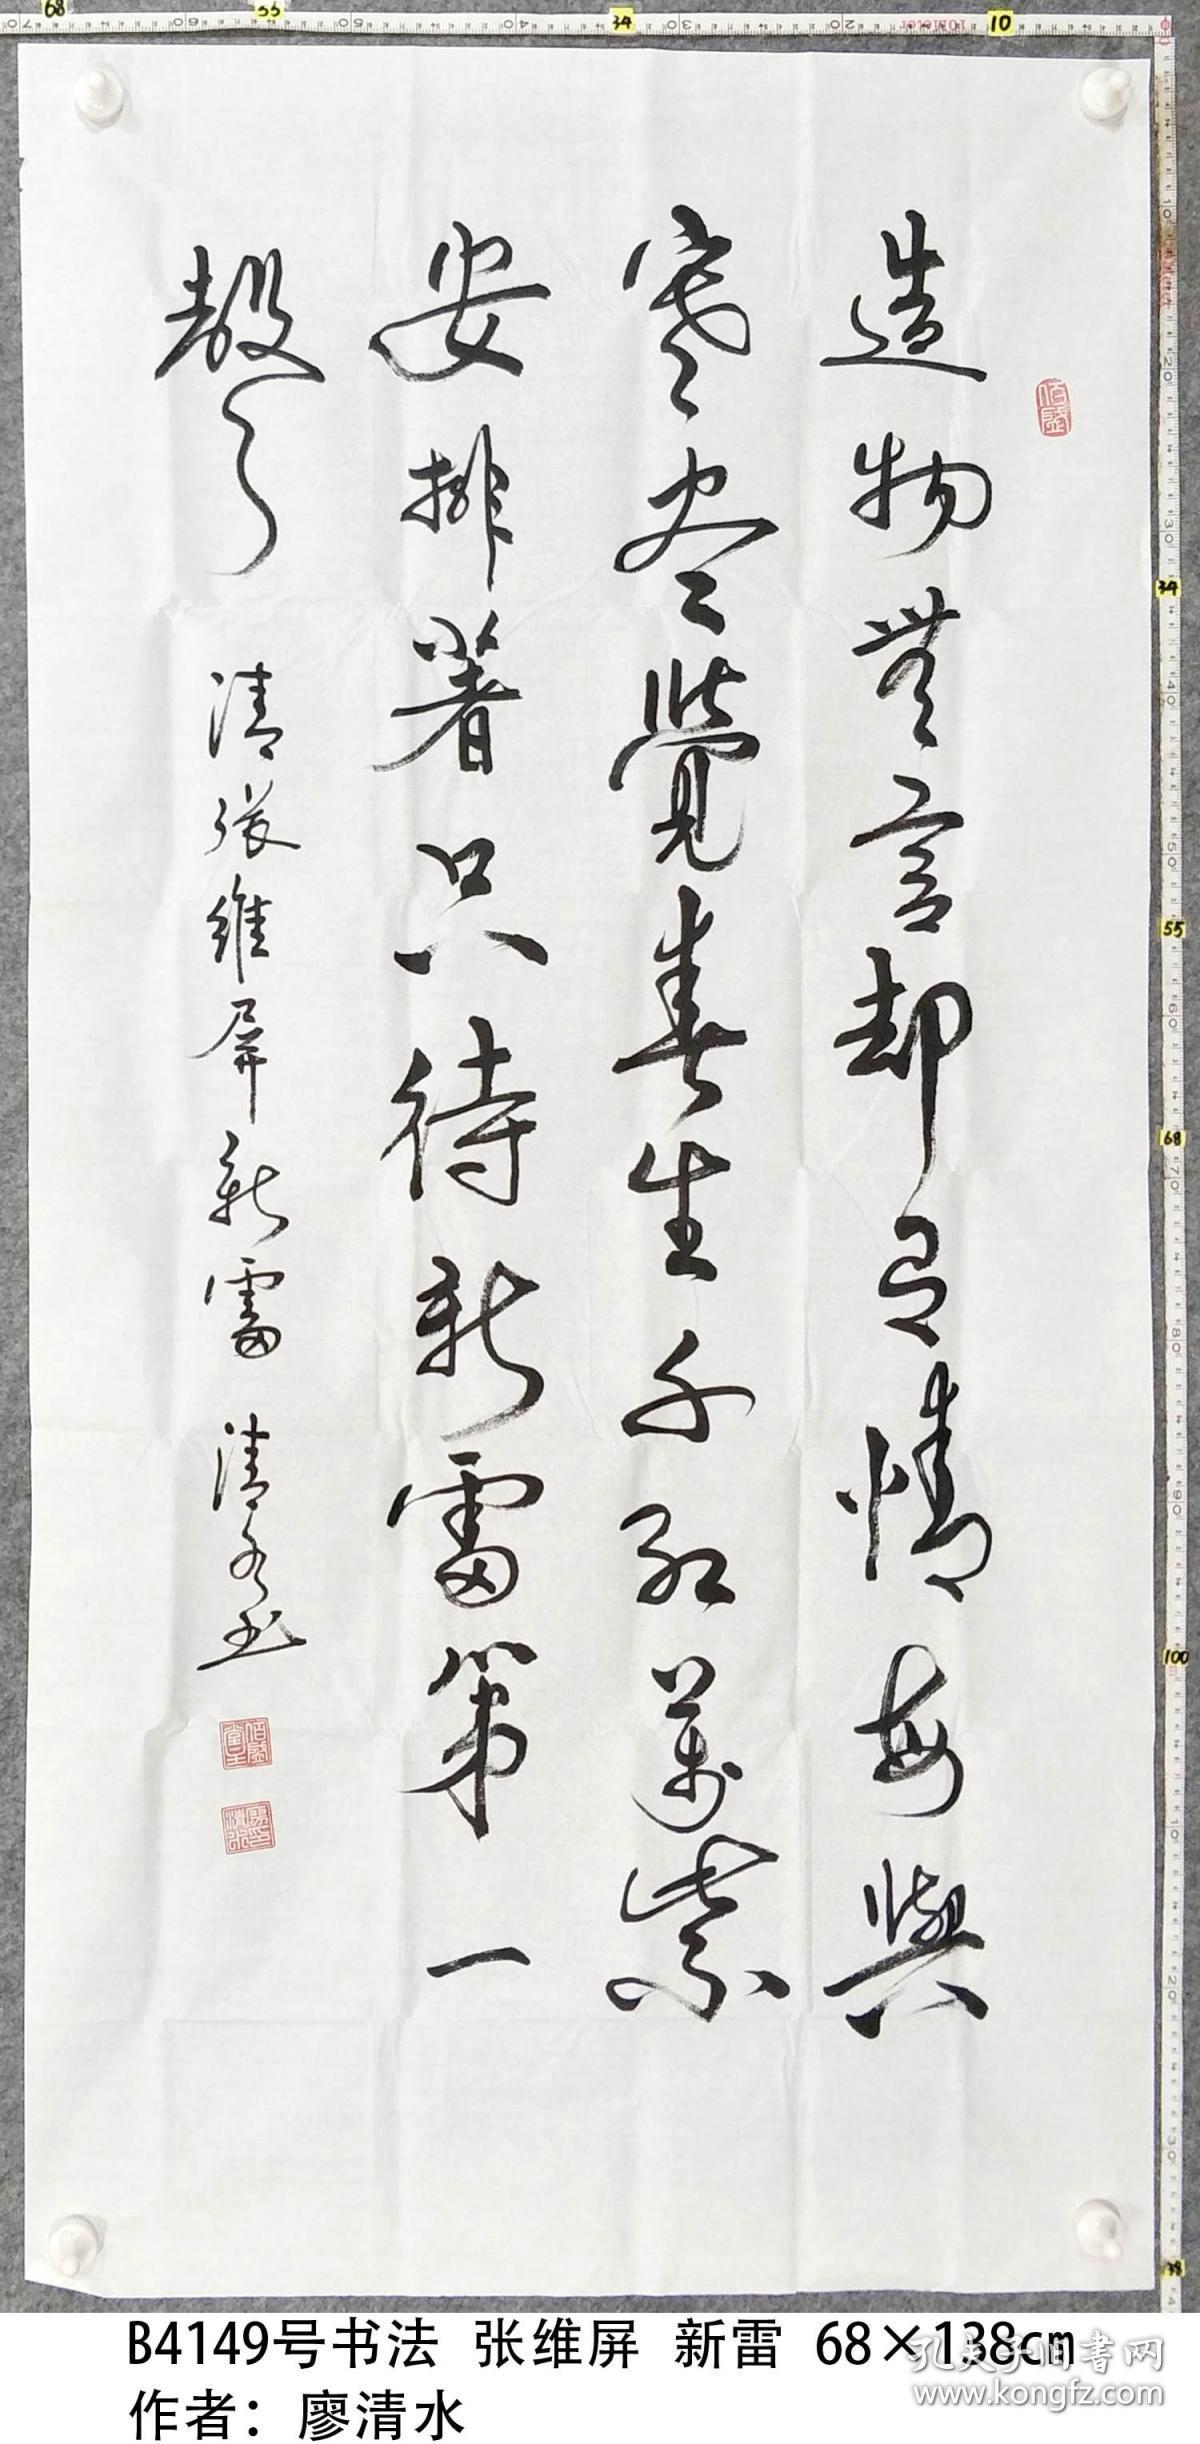 造物無言却有情每與
寒尽覺春生千紅萬紫
安排著只待新雷第一
聲
清張維屏新雷 清水书
B4149号书法 张维屏 新雷 68×138cm
作者：廖清水
孔夫子旧书网
www.kongfz.com